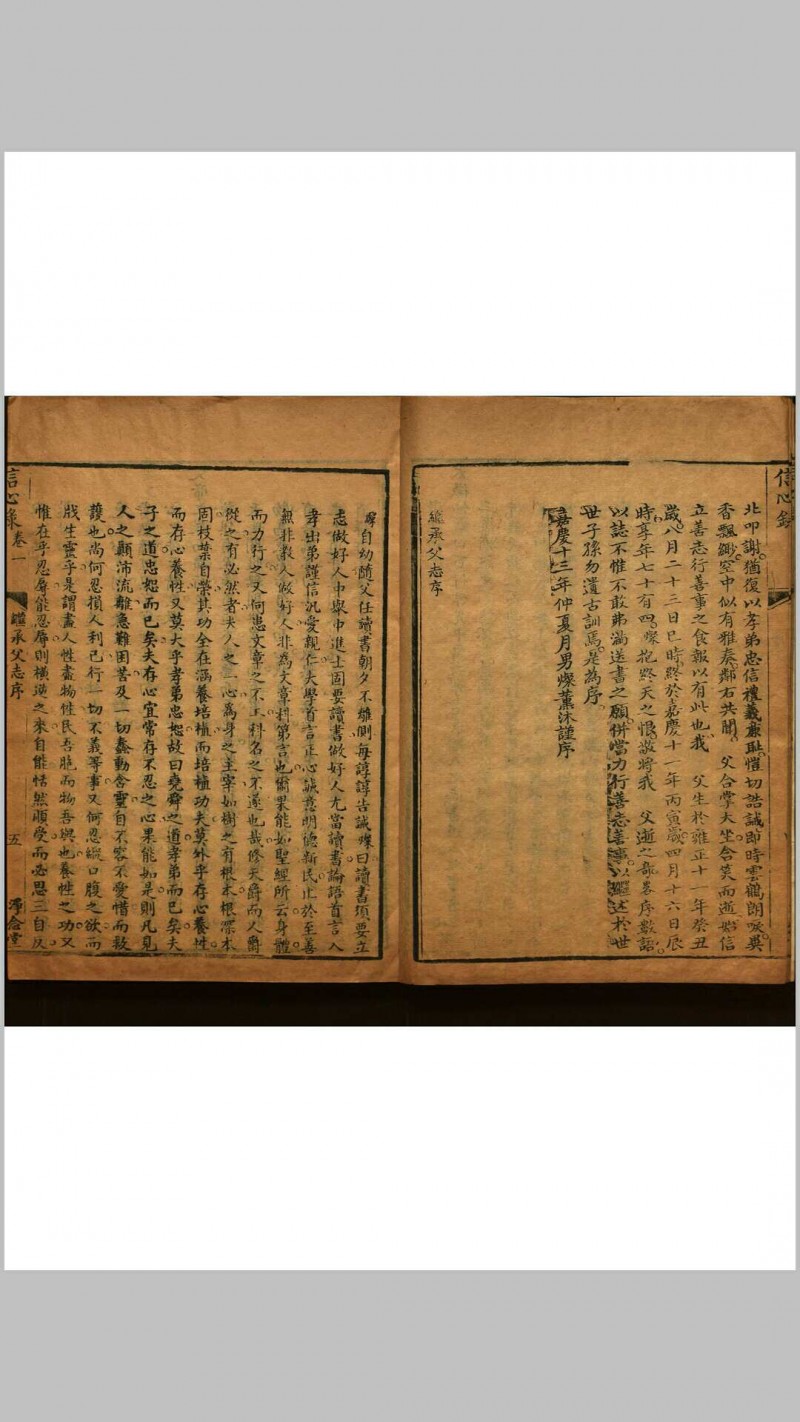 信心錄
北叩謝猶復以孝弟忠信禮義廉恥愷切誥誡即時雲鶴朗唳異
香飄緲空中似有雅奏鄰右共聞父合掌大坐含笑而逝始信
立善志行善事之食報以有此也我父生於雍正十一年癸丑
歲八月二十三日巳時終於嘉慶十一年丙寅歲四月十六日辰
時享年七十有四燦抱終天之恨敬將我父逝之前善序數語
以誌不惟不敢弗滿送書之願併當力行善志善事以繼述於世
世子孫勿遺古訓焉是為序
嘉慶十三年仲夏月男燦薰沐謹序
繼承父志序
燦自幼隨父任讀書朝夕不離側每諄諄告誡燦曰讀書須要立
志做好人中舉中進士固要讀書做好人尤當讀書論語首言入
孝出弟謹信汎愛親仁大學首言正心誠意明德新民止於至善
無非教人做好人非為文章科第言也爾果能如聖經所云身體
而力行之又何患文章之不工科名之不遂也哉修天爵而人爵
從之有必然者夫人之一心為身之主宰如樹之有根本根深本
固枝葉自榮其功全在涵養培植而培植功夫莫外乎存心養性
而存心養性又莫大乎孝弟忠恕故曰堯舜之道孝弟而已矣夫
子之道忠恕而已矣夫存心宜常存不忍之心果能如是則凡見
人之顛沛流離急難困苦及一切蠢動含靈自不容不愛惜而救
護也尚何忍損人利己行一切不義等事又何忍縱口腹之欲而
戕生靈乎是謂盡人性盡物性民吾胞而物吾與也養性之功又
惟在乎忍辱能忍辱則橫逆之來自能恬然順受而必思三自反
信心錄 卷一 繼承父志序 五